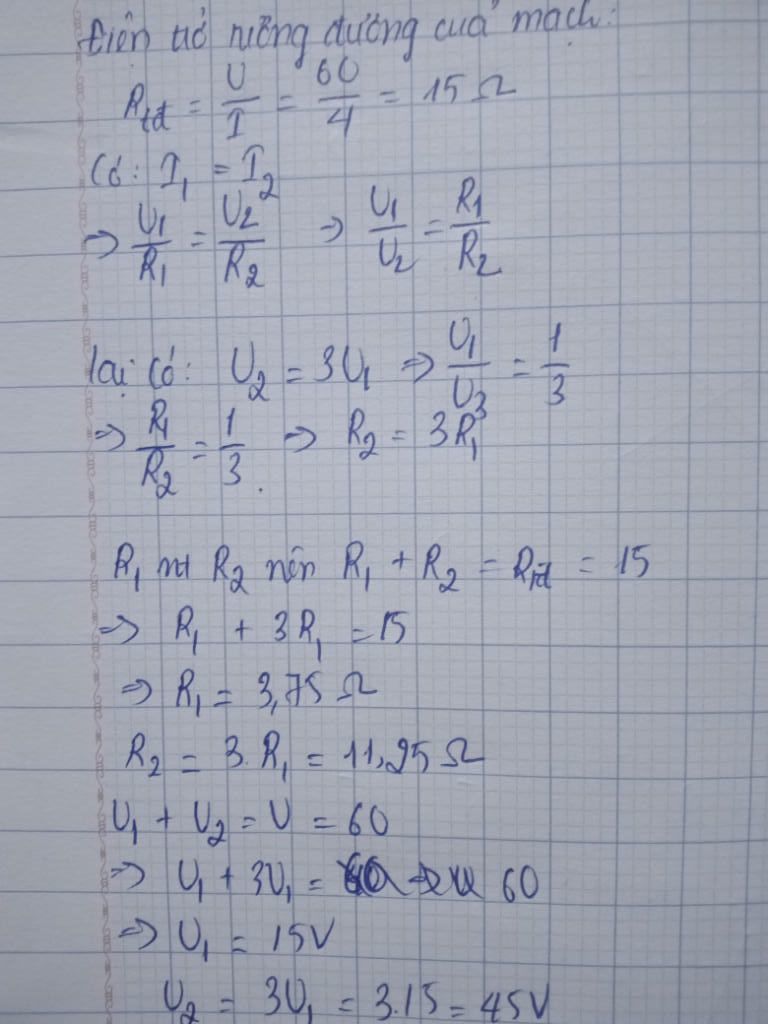 Điện trở tương đương của mạch:
Rtđ = U/I = 60/4 = 15 Ω
Có: I₁ = I₂
⇒ U₁/R₁ = U₂/R₂ ⇒ U₁/U₂ = R₁/R₂
lại có: U₂ = 3U₁ ⇒ U₁/U₃ = 1/3
⇒ R₁/R₂ = 1/3 ⇒ R₂ = 3R₁
R₁ nt R₂ nên R₁ + R₂ = Rtđ = 15
⇒ R₁ + 3R₁ = 15
⇒ R₁ = 3,75 Ω
R₂ = 3.R₁ = 11,25 Ω
U₁ + U₂ = U = 60
⇒ U₁ + 3U₁ = 60
⇒ U₁ = 15V
U₂ = 3U₁ = 3.15 = 45V